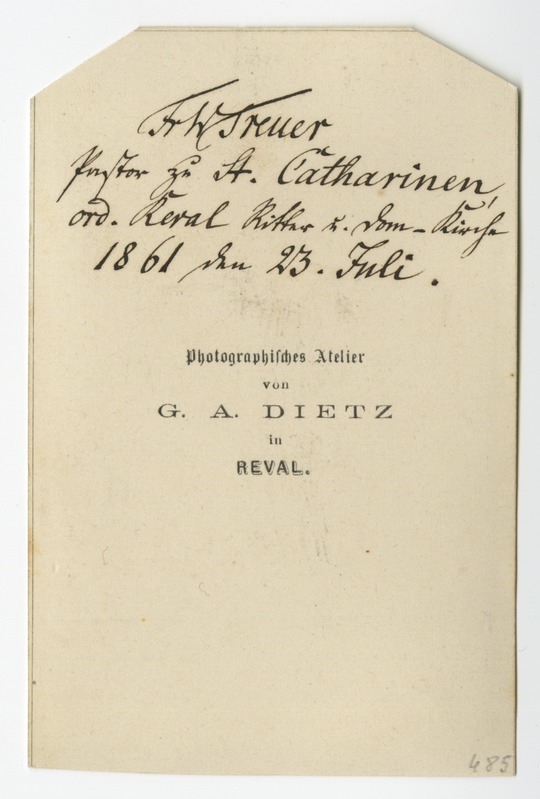 Fr W Treuer
Pastor zu St. Catharinen,
ord. Reval Ritter u. Dom-Kirche
1861 den 23. Juli.
Photographiſches Atelier
von
G. A. DIETZ
in
REVAL.
485